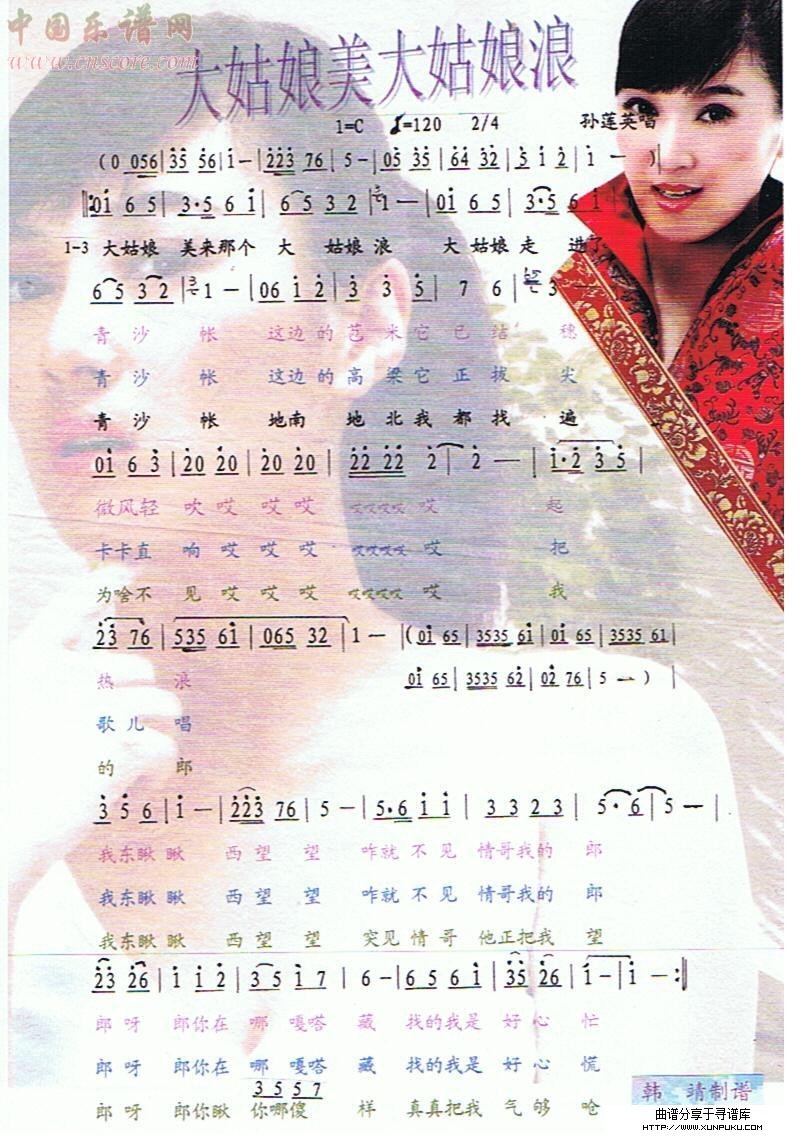 中国乐谱网
www.cnscore.com
大姑娘美大姑娘浪
1=C ♩=120 2/4 孙莲英唱
(0 056|35 56|1-|223 76|5-|05 35|64 32|5 1 2|1 —)
‖:01 6 5|3·5 6 1|6 5 3 2|1—|01 6 5|3·5 6 1
1-3 大姑娘 美来那个 大 姑娘 浪 大姑娘 走 进了
6 5 3 2|1—|06 1 2|3 3 5|7 6|3—
青 沙 帐 这边的芭米它已结 穗
青 沙 帐 这边的高梁它正拔尖
青 沙 帐 地南地北我都找 遍
01 6 3|20 20|20 20|22 22 2|2 —|1·2 3 5|
微风轻 吹哎 哎哎 哎哎哎 哎 起
卡卡直 响哎 哎哎 哎哎哎 哎 把
为啥不 见哎 哎哎 哎哎哎 哎 我
23 76|535 61|065 32|1—|(01 65|3535 61|01 65|3535 61|
热 浪 01 65|3535 62|02 76|5 —)|
歌儿 唱
的 郎
3 5 6|1—|223 76|5—|5·6 1 1|3 3 2 3|5·6|5—|
我东瞅瞅 西望 望 咋就不见 情哥我的 郎
我东瞅瞅 西望 望 咋就不见 情哥我的 郎
我东瞅瞅 西望 望 突见情哥 他正把我 望
23 26|1 1 2|3 5 1 7|6-|6 5 6 1|35 26|1-|1—:‖
郎 呀 郎你在 哪 嘎嗒 藏 找的我是 好 心 忙
郎 呀 郎你在 哪 嘎嗒 藏 找的我是 好 心 慌
3 5 5 7
郎 呀 郎你瞅 你哪傻 样 真真把我 气 够 呛
韩 靖制谱
曲谱分享于寻谱库
HTTP://WWW.XUNPUKU.COM